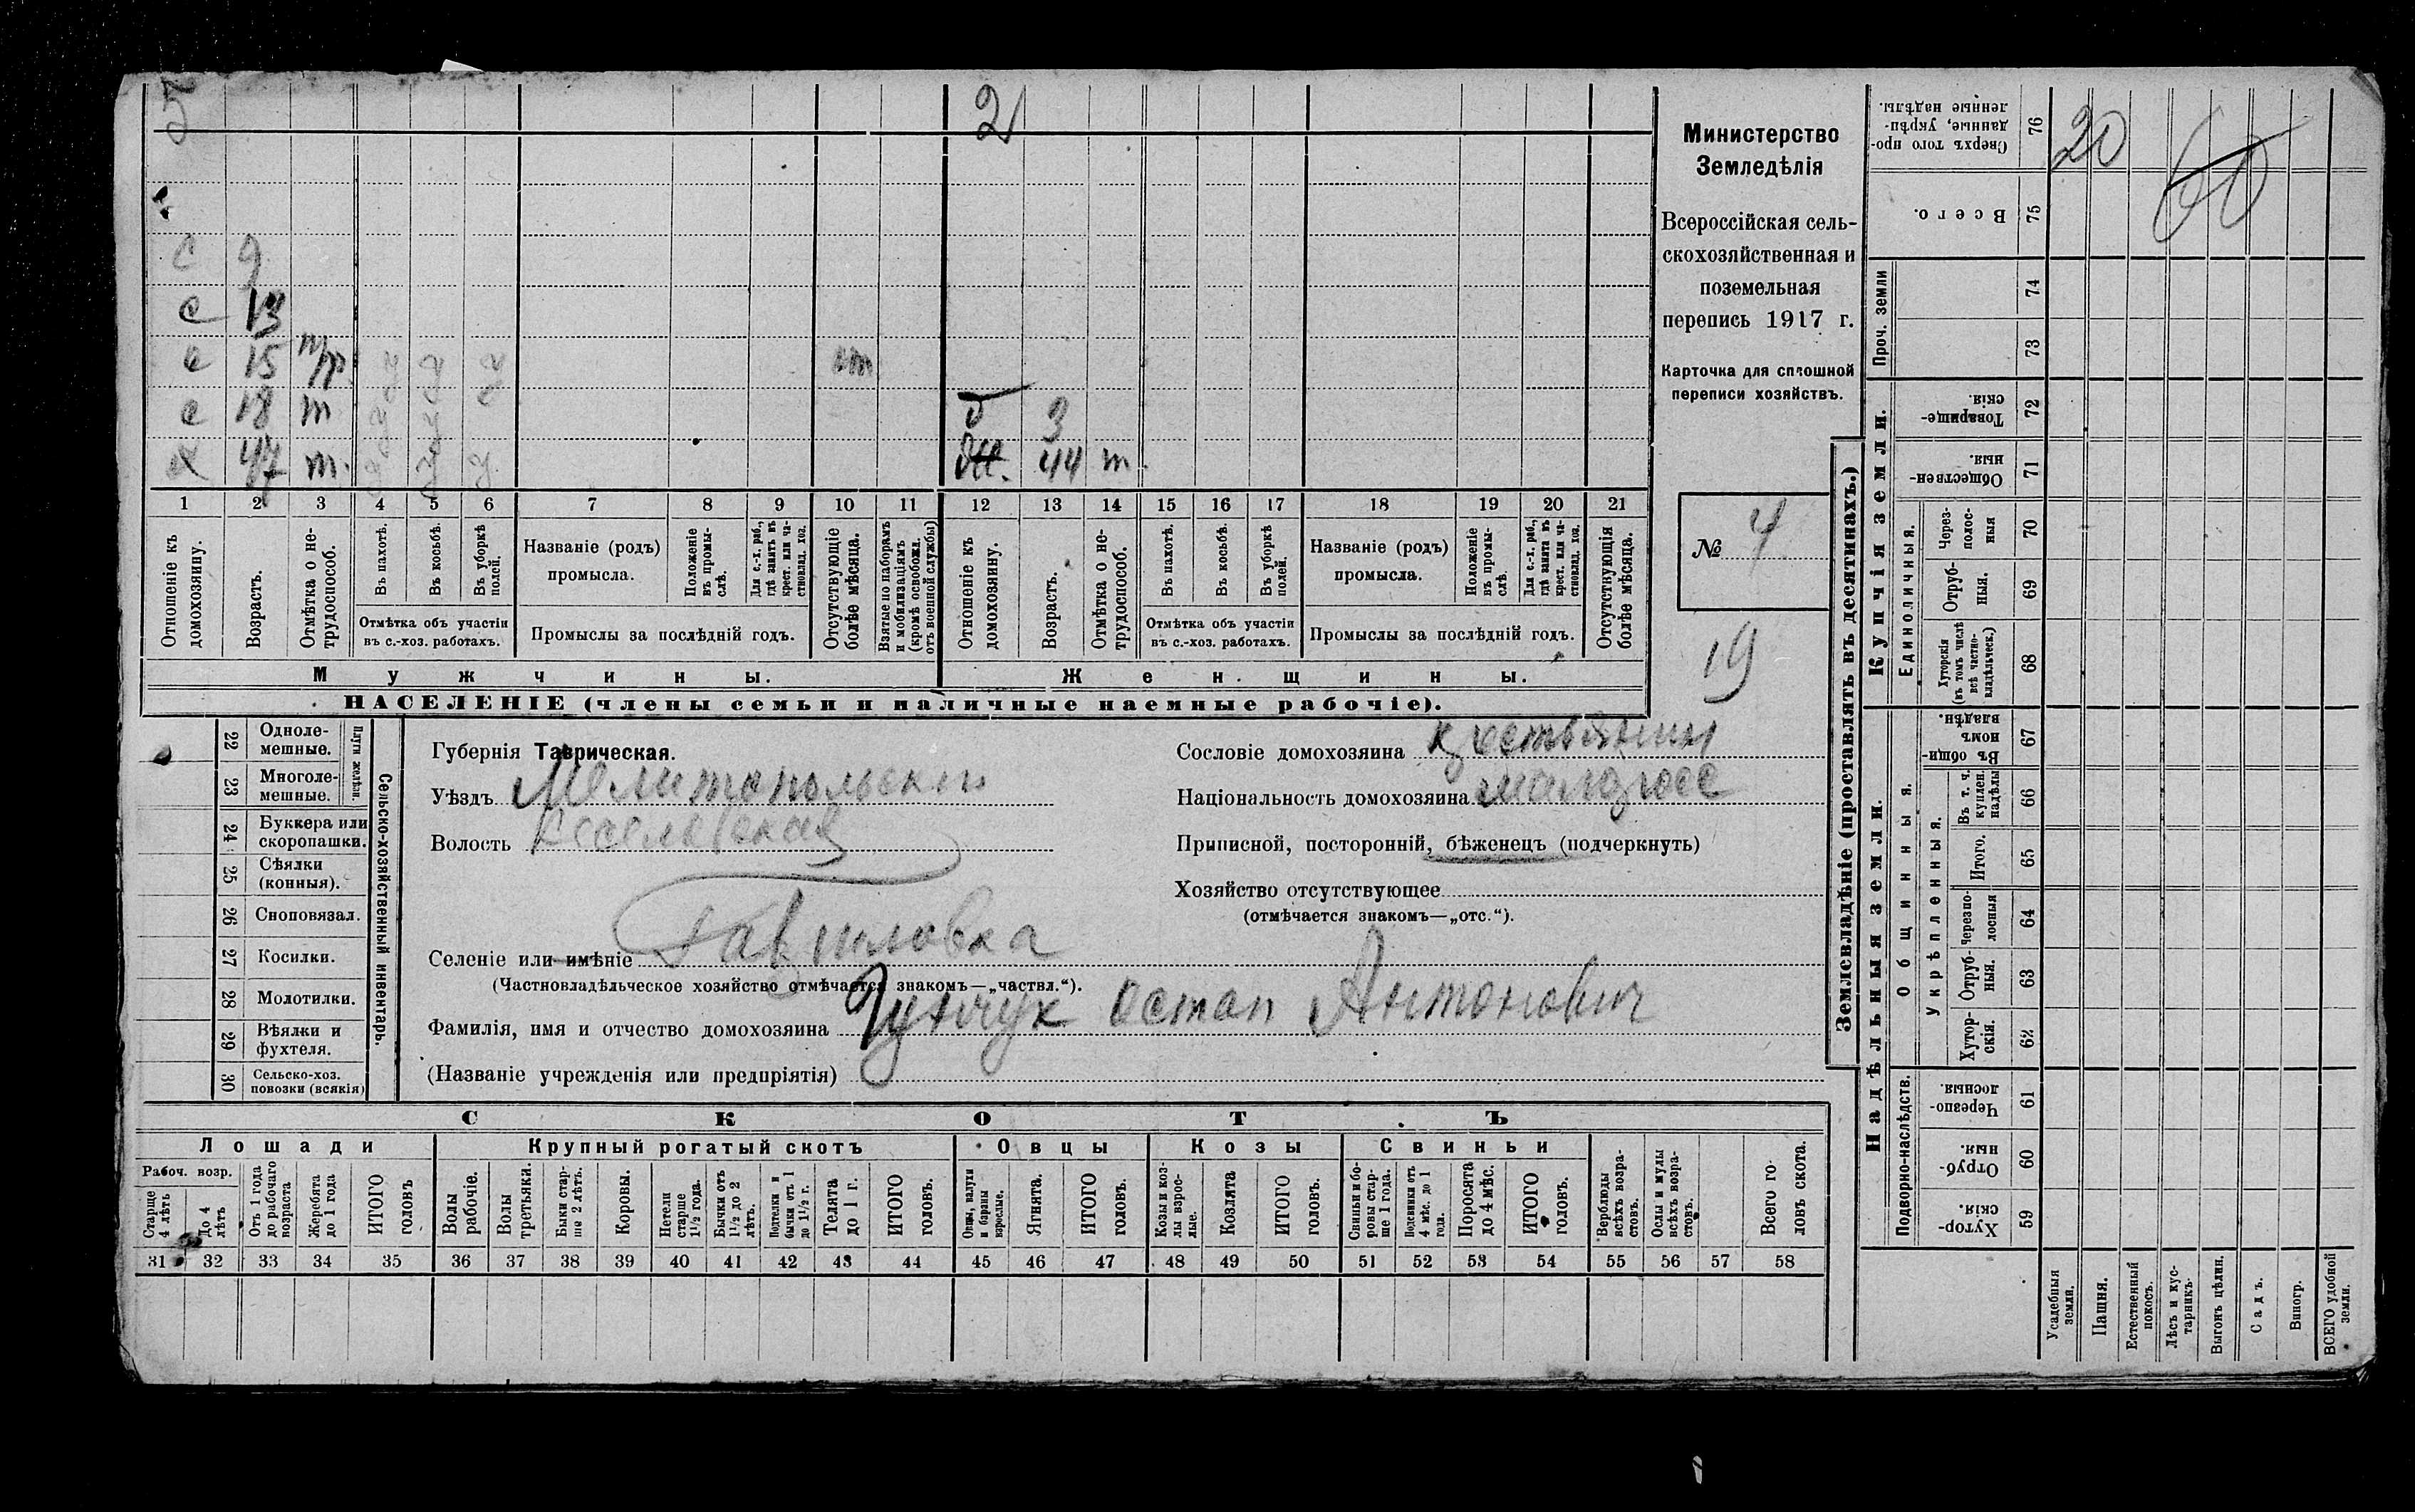 5
2
с 9
с 13
с 15 п/р. у у у от
с 18 т у у
х 47 т. у у у
д 3
ж. 44 т.
1 2 3 4 5 6 7 8 9 10 11 12 13 14 15 16 17 18 19 20 21
Отношеніе къ домохозяину.
Возрастъ.
Отмѣтка о нетрудоспособ.
Въ пахотѣ.
Въ косьбѣ.
Въ уборкѣ полей.
Отмѣтка объ участіи
въ с.-хоз. работахъ.
Названіе (родъ)
промысла.
Положеніе въ промыслѣ.
Для с.-х. раб., гдѣ занятъ въ крест. или частновлад. хоз.
Промыслы за послѣдній годъ.
Отсутствующіе болѣе мѣсяца.
Взятые по наборамъ и мобилизаціямъ (кромѣ освобожд. отъ военной службы)
Отношеніе къ домохозяину.
Возрастъ.
Отмѣтка о нетрудоспособ.
Въ пахотѣ.
Въ косьбѣ.
Въ уборкѣ полей.
Отмѣтка объ участіи
въ с.-хоз. работахъ.
Названіе (родъ)
промысла.
Положеніе въ промыслѣ.
Для с.-х. раб., гдѣ занята въ крест. или частновлад. хоз.
Промыслы за послѣдній годъ.
Отсутствующія болѣе мѣсяца.
Мужчины.
Женщины.
НАСЕЛЕНІЕ (члены семьи и наличные наемные рабочіе).
Министерство
Земледѣлія
Всероссійская сель-
скохозяйственная и
поземельная
перепись 1917 г.
Карточка для сплошной
переписи хозяйствъ.
№ 4
19
22 Одноле-
мешные.
23 Многоле-
мешные.
Плуги желѣзн.
24 Буккера или
скоропашки.
25 Сѣялки
(конныя).
26 Сноповязал.
27 Косилки.
28 Молотилки.
29 Вѣялки и
фухтеля.
30 Сельско-хоз.
повозки (всякія)
Сельско-хозяйственный инвентарь.
Губернія Таврическая.
Уѣздъ Мелитопольскій
Волость
Селеніе или имѣніе Гавриловка
(Частновладѣльческое хозяйство отмѣчается знакомъ—„частвл.“).
Фамилія, имя и отчество домохозяина Остап Антонович
(Названіе учрежденія или предпріятія)
Сословіе домохозяина крестьянин
Національность домохозяина малоросс
Приписной, посторонній, бѣженецъ (подчеркнуть)
Хозяйство отсутствующее
(отмѣчается знакомъ—„отс.“).
СКОТЪ
Лошади
Крупный рогатый скотъ
Овцы
Козы
Свиньи
Рабоч. возр.
Старше 4 лѣтъ
До 4 лѣтъ
Отъ 1 года до рабочаго возраста
Жеребята до 1 года
ИТОГО головъ
Волы рабочіе.
Волы третьяки.
Быки старше 2 лѣтъ.
Коровы.
Нетели старше 1½ года.
Бычки отъ 1½ до 2 лѣтъ.
Подтелки и бычки отъ 1 до 1½ г.
Телята до 1 г.
ИТОГО головъ.
Овцы, валухи и бараны взрослые.
Ягнята.
ИТОГО головъ.
Козы и козлы взрослые.
Козлята
ИТОГО головъ.
Свиньи и боровы старше 1 года.
Подсвинки отъ 4 мѣс. до 1 года.
Поросята до 4 мѣс.
ИТОГО головъ.
Верблюды всѣхъ возрастовъ.
Ослы и мулы всѣхъ возрастовъ.
Всего головъ скота.
31 32 33 34 35 36 37 38 39 40 41 42 43 44 45 46 47 48 49 50 51 52 53 54 55 56 57 58
Землевладѣніе (проставлять въ десятинахъ.)
Купчія земли.
Надѣльныя земли.
Проч. земли
Единоличныя.
Общинныя.
Укрѣпленныя.
Подворно-наслѣдств.
Сверхъ того проданные, укрѣпленные надѣлы. 76
20
60
Всего. 75
74
73
Товарищескія. 72
Общественныя. 71
Черезполосныя 70
Отрубныя. 69
Хуторскія (въ томъ числѣ всѣ частновладѣльческ.) 68
Въ общинномъ владѣн. 67
Въ т. ч. куплен. надѣлы 66
Итого. 65
Черезполосныя 64
Отрубныя. 63
Хуторскія. 62
Черезполосныя 61
Отрубныя. 60
Хуторскія. 59
Усадебныя земли.
Пашня.
Естественный покосъ.
Лѣсъ и кустарникъ.
Выгонъ цѣлин.
Садъ.
Виногр.
ВСЕГО удобной земли.